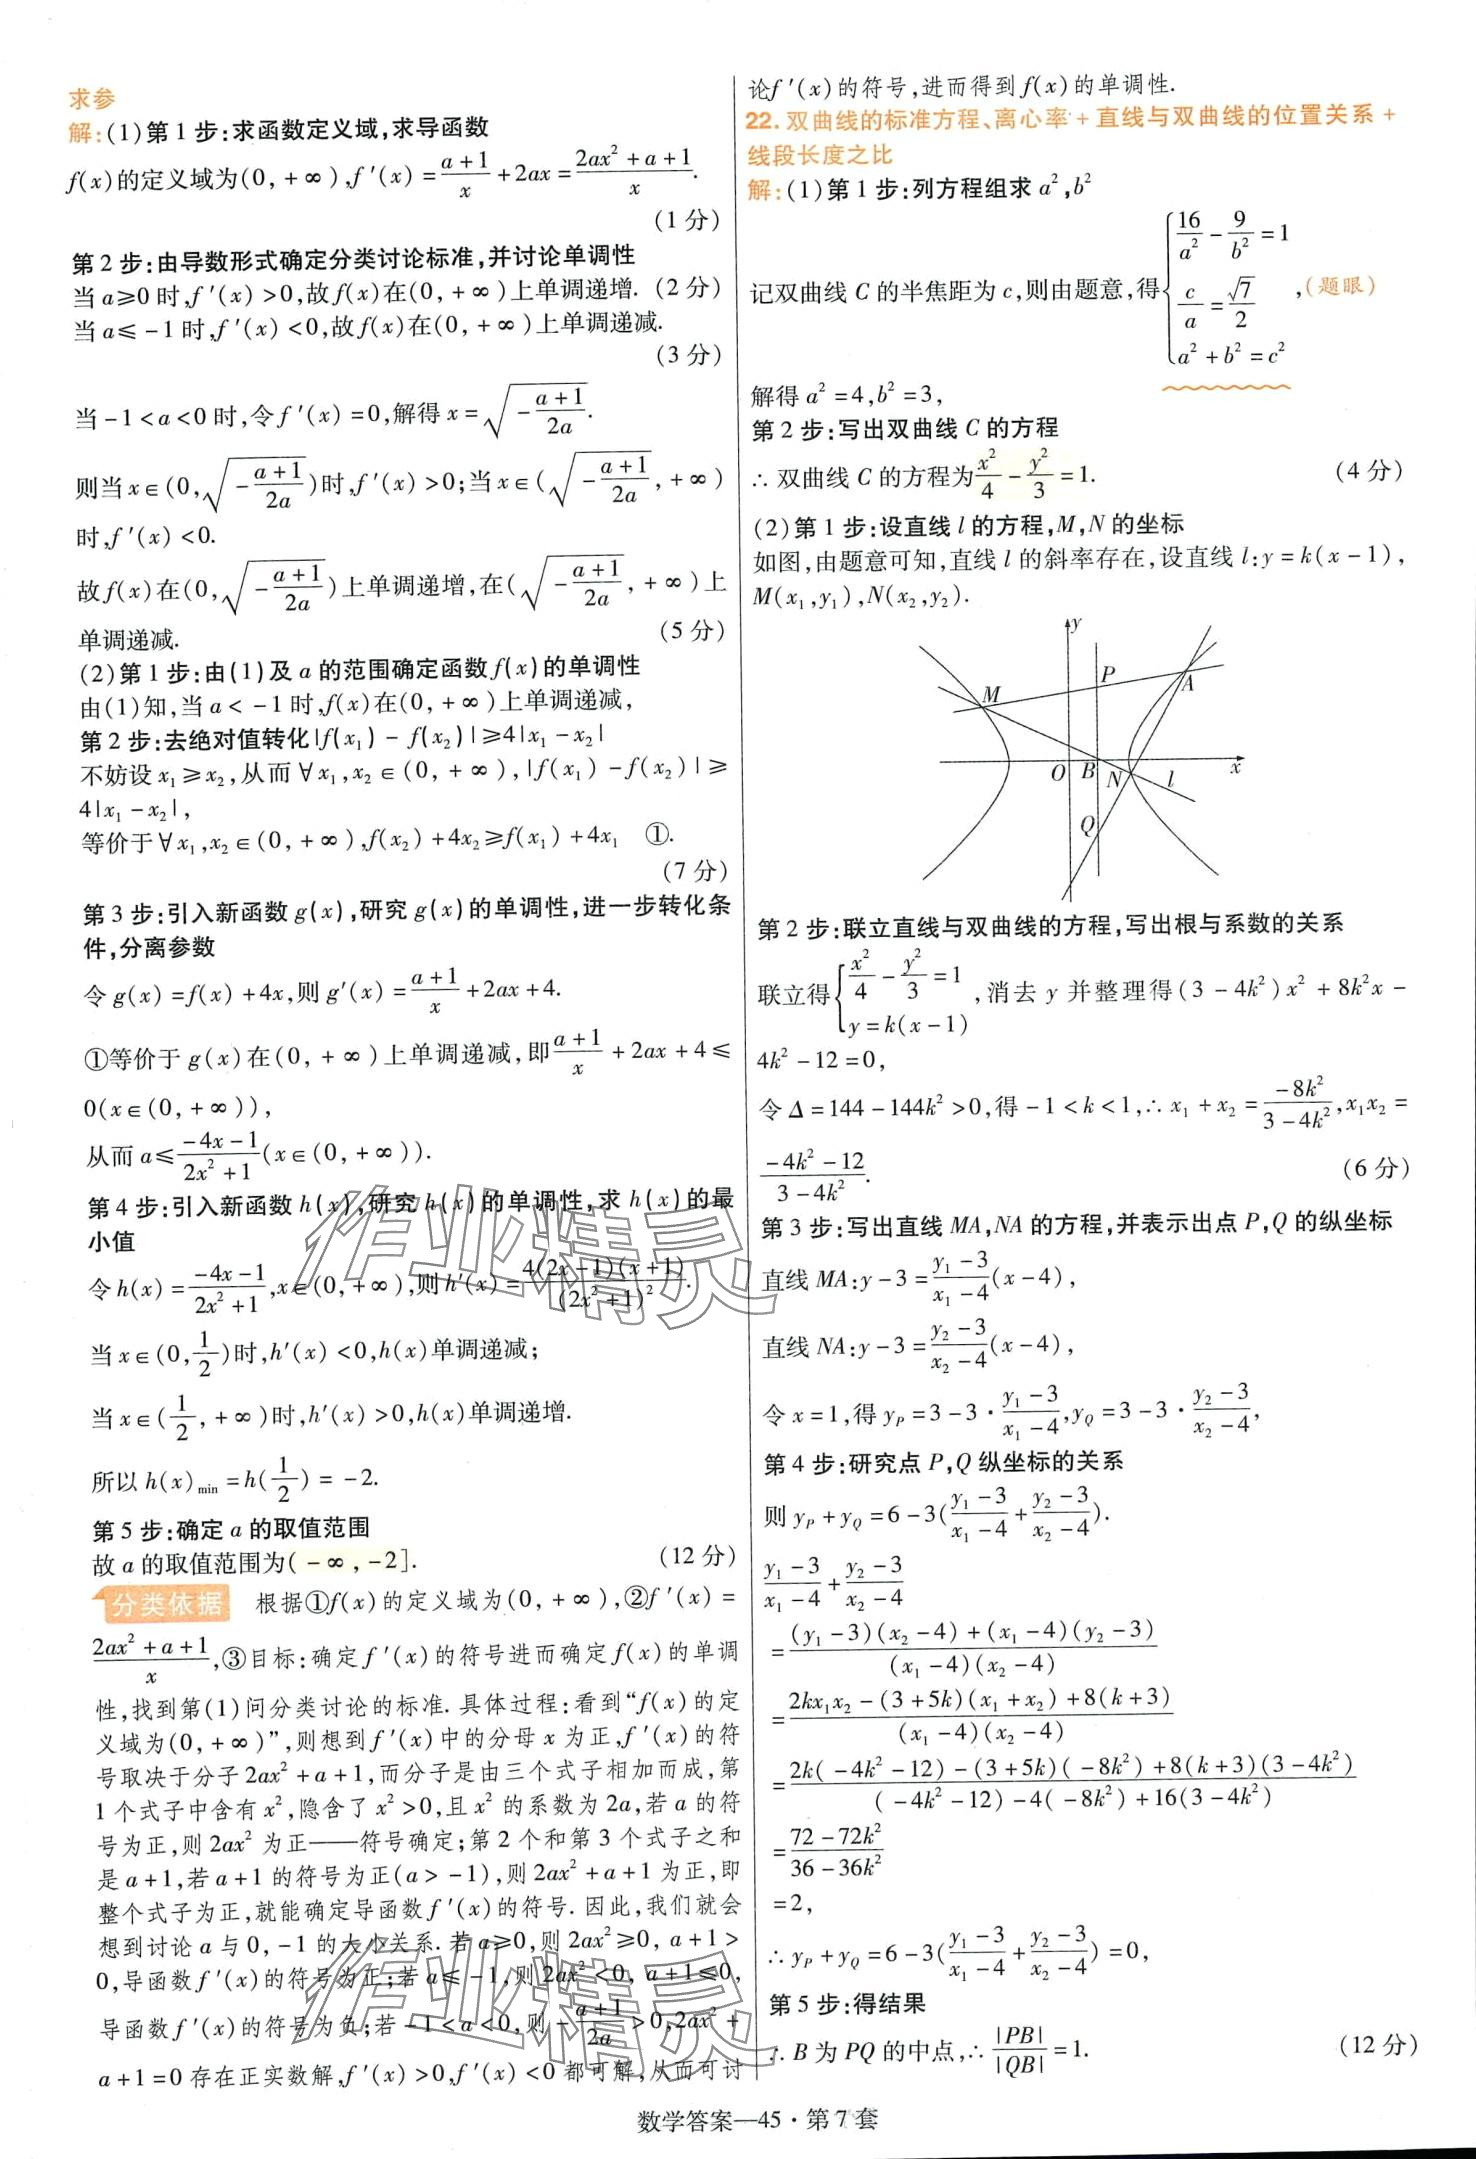 求参
解:(1)第1步:求函数定义域,求导函数
f(x)的定义域为(0,+∞),f′(x)=\frac{a+1}{x}+2ax=\frac{2ax²+a+1}{x}.
(1分)
第2步:由导数形式确定分类讨论标准,并讨论单调性
当a≥0时,f′(x)>0,故f(x)在(0,+∞)上单调递增. (2分)
当a≤-1时,f′(x)<0,故f(x)在(0,+∞)上单调递减.
(3分)
当-1<a<0时,令f′(x)=0,解得x=\sqrt{-\frac{a+1}{2a}}.
则当x∈(0,\sqrt{-\frac{a+1}{2a}})时,f′(x)>0;当x∈(\sqrt{-\frac{a+1}{2a}},+∞)
时,f′(x)<0.
故f(x)在(0,\sqrt{-\frac{a+1}{2a}})上单调递增,在(\sqrt{-\frac{a+1}{2a}},+∞)上
单调递减. (5分)
(2)第1步:由(1)及a的范围确定函数f(x)的单调性
由(1)知,当a<-1时,f(x)在(0,+∞)上单调递减,
第2步:去绝对值转化|f(x₁)-f(x₂)|≥4|x₁-x₂|
不妨设x₁≥x₂,从而∀x₁,x₂∈(0,+∞),|f(x₁)-f(x₂)|≥
4|x₁-x₂|,
等价于∀x₁,x₂∈(0,+∞),f(x₂)+4x₂≥f(x₁)+4x₁ ①.
(7分)
第3步:引入新函数g(x),研究g(x)的单调性,进一步转化条
件,分离参数
令g(x)=f(x)+4x,则g′(x)=\frac{a+1}{x}+2ax+4.
①等价于g(x)在(0,+∞)上单调递减,即\frac{a+1}{x}+2ax+4≤
0(x∈(0,+∞)),
从而a≤\frac{-4x-1}{2x²+1}(x∈(0,+∞)).
第4步:引入新函数h(x),研究h(x)的单调性,求h(x)的最
小值
令h(x)=\frac{-4x-1}{2x²+1},x∈(0,+∞),则h′(x)=\frac{4(2x-1)(x+1)}{(2x²+1)²}.
当x∈(0,\frac{1}{2})时,h′(x)<0,h(x)单调递减;
当x∈(\frac{1}{2},+∞)时,h′(x)>0,h(x)单调递增.
所以h(x)_{min}=h(\frac{1}{2})=-2.
第5步:确定a的取值范围
故a的取值范围为(-∞,-2]. (12分)
分类依据 根据①f(x)的定义域为(0,+∞),②f′(x)=
\frac{2ax²+a+1}{x},③目标:确定f′(x)的符号进而确定f(x)的单调
性,找到第(1)问分类讨论的标准.具体过程:看到“f(x)的定
义域为(0,+∞)”,则想到f′(x)中的分母x为正,f′(x)的符
号取决于分子2ax²+a+1,而分子是由三个式子相加而成,第
1个式子中含有x²,隐含了x²>0,且x²的系数为2a,若a的符
号为正,则2ax²为正——符号确定;第2个和第3个式子之和
是a+1,若a+1的符号为正(a>-1),则2ax²+a+1为正,即
整个式子为正,就能确定导函数f′(x)的符号.因此,我们就会
想到讨论a与0,-1的大小关系.若a≥0,则2ax²≥0,a+1>
0,导函数f′(x)的符号为正;若a≤-1,则2ax²<0,a+1≤0,
导函数f′(x)的符号为负;若-1<a<0,则-\frac{a+1}{2a}>0,2ax²+
a+1=0存在正实数解,f′(x)>0,f′(x)<0都可解,从而可讨
论f′(x)的符号,进而得到f(x)的单调性.
22.双曲线的标准方程、离心率+直线与双曲线的位置关系+
线段长度之比
解:(1)第1步:列方程组求a²,b²
记双曲线C的半焦距为c,则由题意,得{\frac{16}{a²}-\frac{9}{b²}=1 \frac{c}{a}=\frac{\sqrt{7}}{2} a²+b²=c²,(题眼)
解得a²=4,b²=3,
第2步:写出双曲线C的方程
∴双曲线C的方程为\frac{x²}{4}-\frac{y²}{3}=1. (4分)
(2)第1步:设直线l的方程,M,N的坐标
如图,由题意可知,直线l的斜率存在,设直线l:y=k(x-1),
M(x₁,y₁),N(x₂,y₂).
y
P
A
M
O
B
N
l
x
Q
第2步:联立直线与双曲线的方程,写出根与系数的关系
联立得{\frac{x²}{4}-\frac{y²}{3}=1 y=k(x-1),消去y并整理得(3-4k²)x²+8k²x-
4k²-12=0,
令Δ=144-144k²>0,得-1<k<1,∴x₁+x₂=\frac{-8k²}{3-4k²},x₁x₂=
\frac{-4k²-12}{3-4k²}. (6分)
第3步:写出直线MA,NA的方程,并表示出点P,Q的纵坐标
直线MA:y-3=\frac{y₁-3}{x₁-4}(x-4),
直线NA:y-3=\frac{y₂-3}{x₂-4}(x-4),
令x=1,得y_P=3-3·\frac{y₁-3}{x₁-4},y_Q=3-3·\frac{y₂-3}{x₂-4},
第4步:研究点P,Q纵坐标的关系
则y_P+y_Q=6-3(\frac{y₁-3}{x₁-4}+\frac{y₂-3}{x₂-4}).
\frac{y₁-3}{x₁-4}+\frac{y₂-3}{x₂-4}
=\frac{(y₁-3)(x₂-4)+(x₁-4)(y₂-3)}{(x₁-4)(x₂-4)}
=\frac{2kx₁x₂-(3+5k)(x₁+x₂)+8(k+3)}{(x₁-4)(x₂-4)}
=\frac{2k(-4k²-12)-(3+5k)(-8k²)+8(k+3)(3-4k²)}{(-4k²-12)-4(-8k²)+16(3-4k²)}
=\frac{72-72k²}{36-36k²}
=2,
∴y_P+y_Q=6-3(\frac{y₁-3}{x₁-4}+\frac{y₂-3}{x₂-4})=0,
第5步:得结果
∴B为PQ的中点,∴\frac{|PB|}{|QB|}=1. (12分)
数学答案—45·第7套
作业精灵
作业精灵